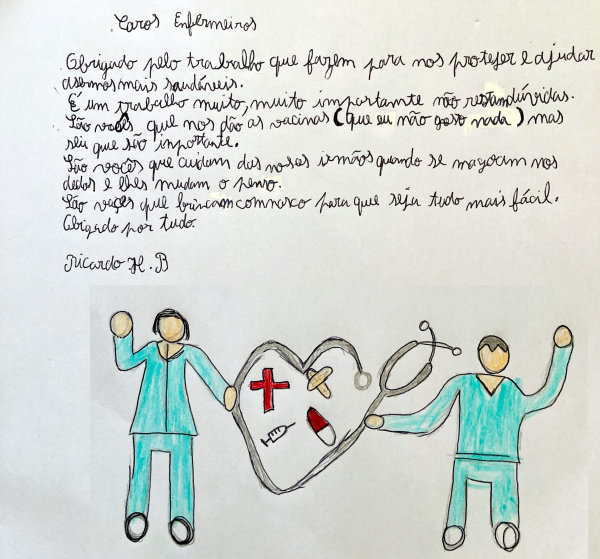 Caros Enfermeiros
Obrigado pelo trabalho que fazem para nos protejer e ajudar
asermos mais saudáveis.
É um trabalho muito, muito importamte não restam dúvidas.
São vocês que nos dão as vacinas (que eu não gosto nada) mas
sei que são inportante.
São vocês que cuidam dos nosos irmãos quando se magoam nos
dedos e lhes mudam o penso.
São voçes que brincam comnosco para que seja tudo mais fácil.
Obrigado por tudo.
Ricardo H. B